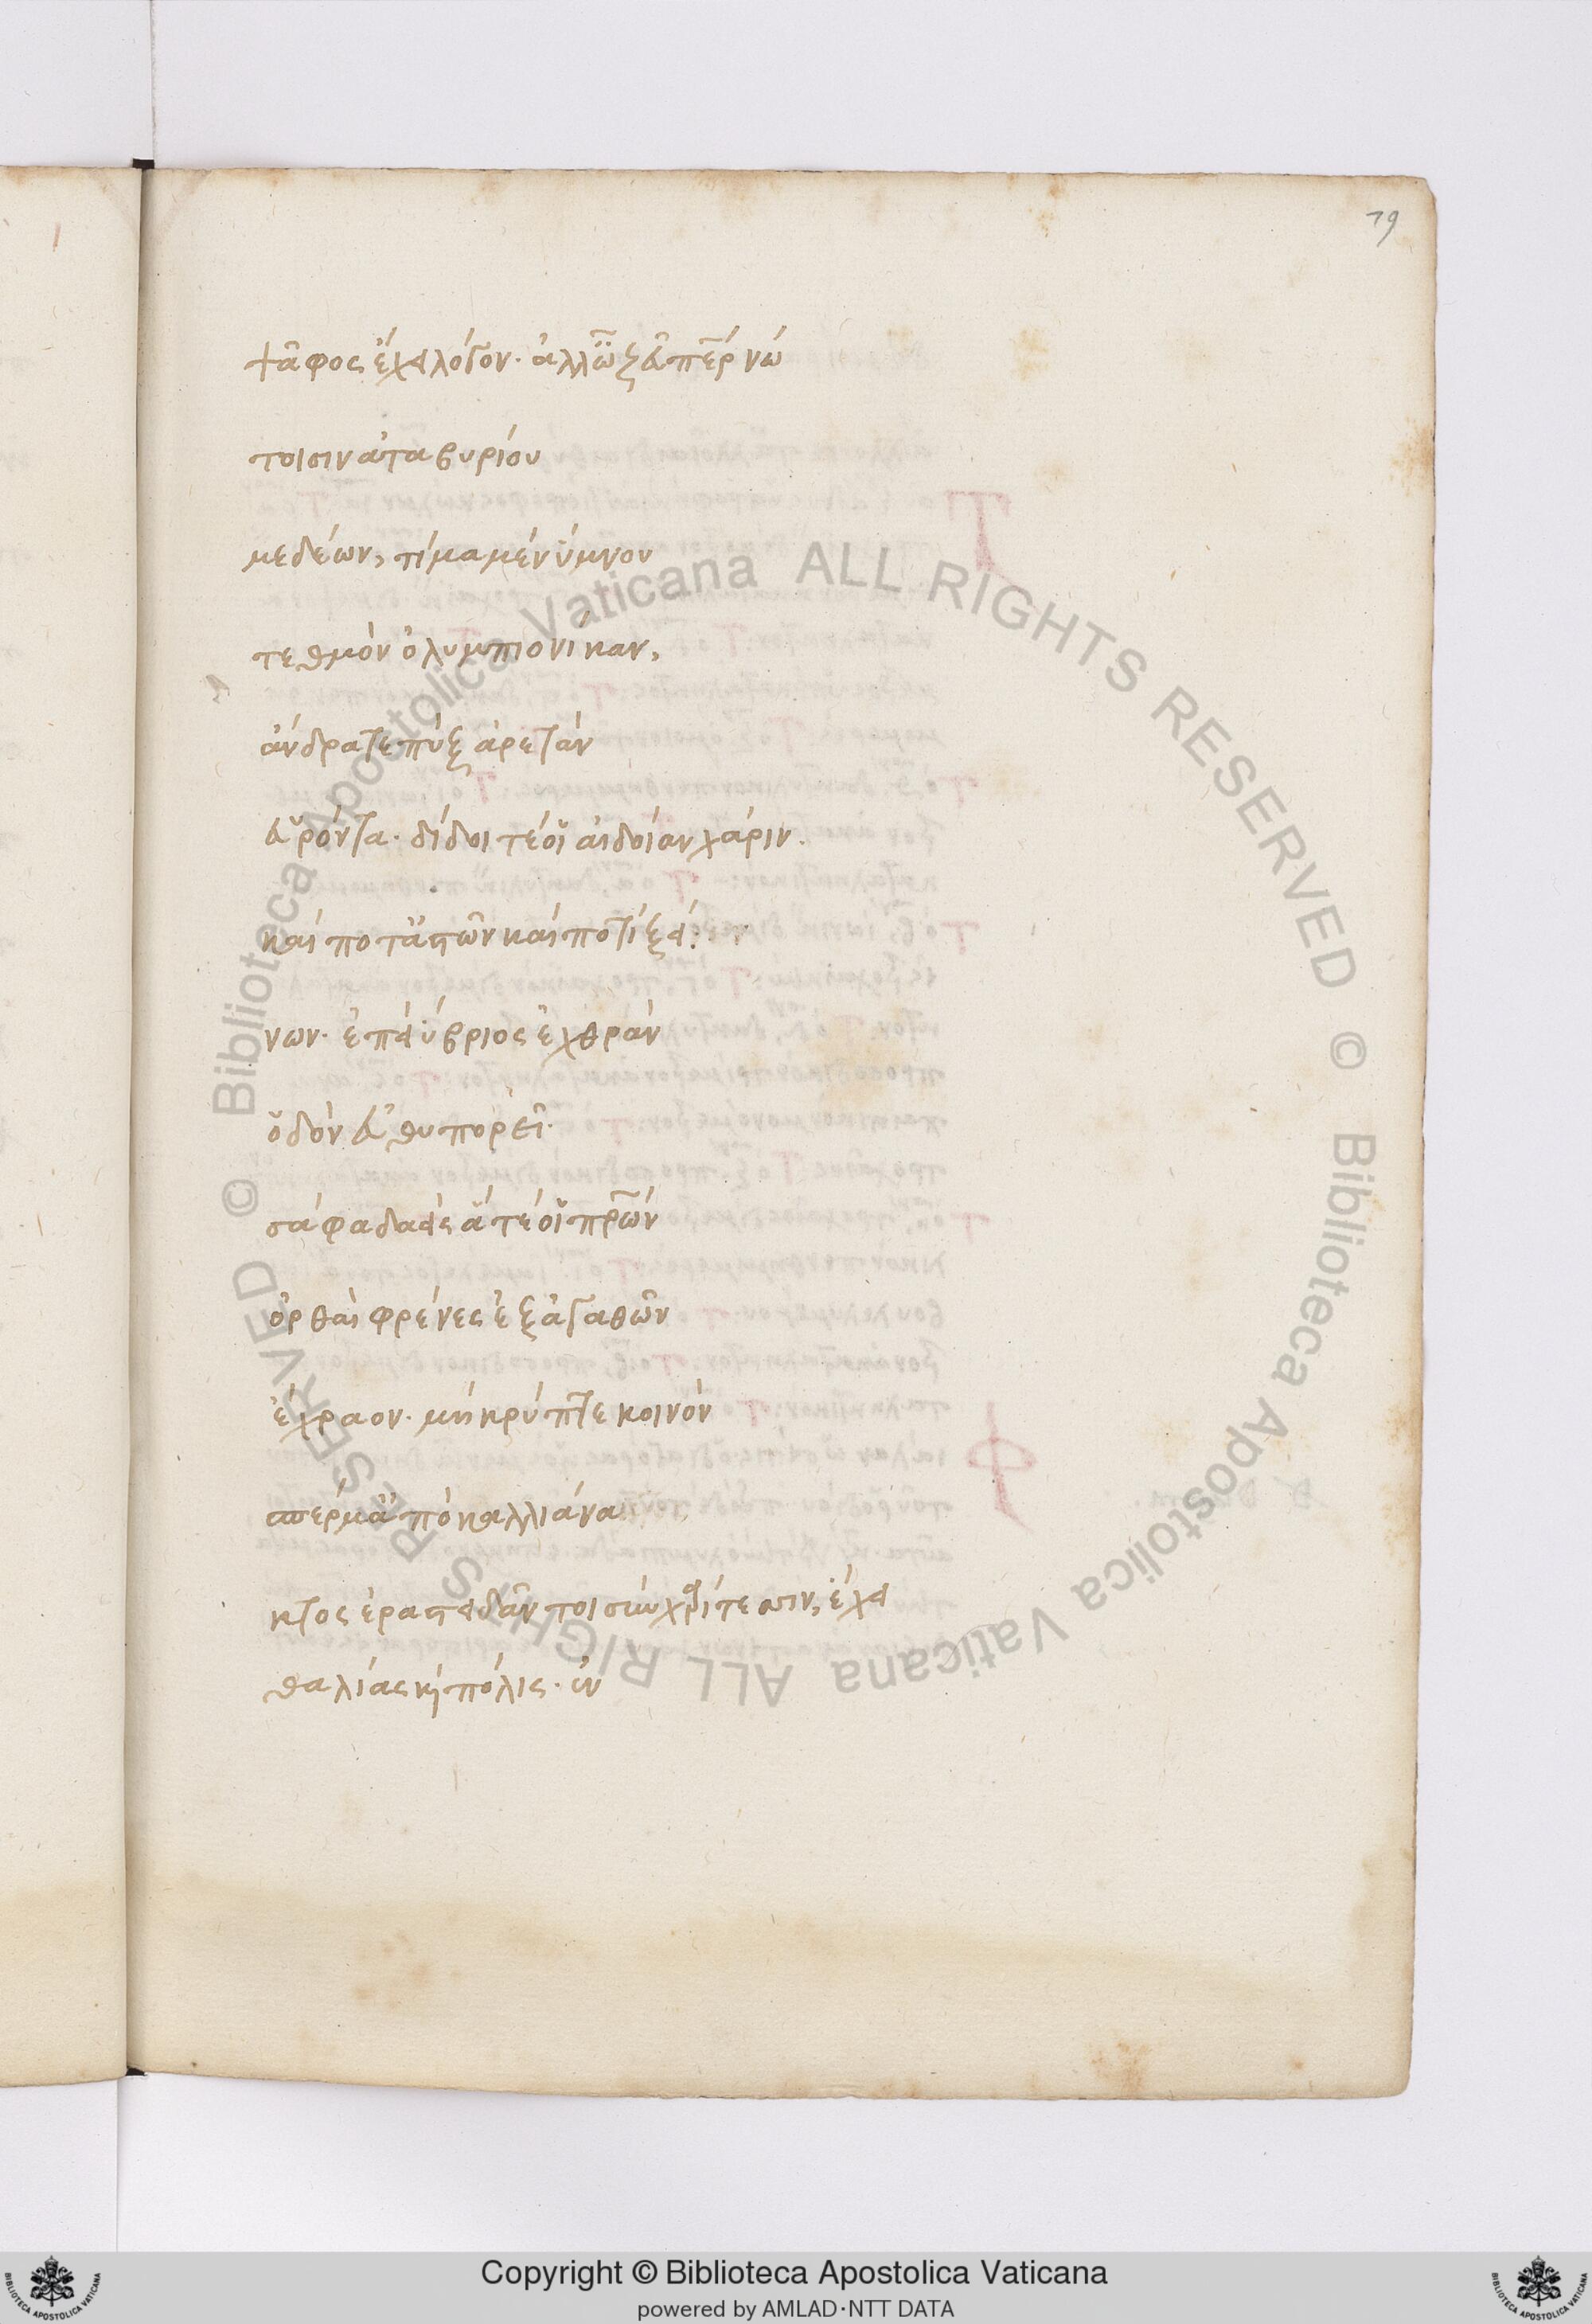 79
ψᾶφος ἔχει λόγον. ἀλλ' ὦ ζεῦ πάτερ νώ
τοισιν ἀταβυρίου
μεδέων, τίμα μὲν ὕμνου
τεθμὸν ὀλυμπιονίκαν,
ἄνδρα τε πὺξ ἀρετὰν
εὑρόντα. δίδοι τέ οἱ αἰδοίαν χάριν.
καὶ ποτ' ἀστῶν καὶ ποτὶ ξεί
νων. ἐπεὶ ὕβριος ἐχθρὰν
ὁδὸν εὐθυπορεῖ.
σάφα δαεὶς ἅ τέ οἱ πατέρων
ὀρθαὶ φρένες ἐξ ἀγαθῶν
ἔχραον. μὴ κρύπτε κοινὸν
σπέρμ' ἀπὸ καλλιάνα
κτος ἐρατειδᾶν τοι σὺν χαρίτεσσιν, ἔχει
θαλίας κὴ πόλις. ἐν
Copyright © Biblioteca Apostolica Vaticana
powered by AMLAD·NTT DATA
© Biblioteca Apostolica Vaticana ALL RIGHTS RESERVED © Biblioteca Apostolica Vaticana ALL RIGHTS RESERVED
BIBLIOTECA APOSTOLICA VATICANA
BIBLIOTECA APOSTOLICA VATICANA